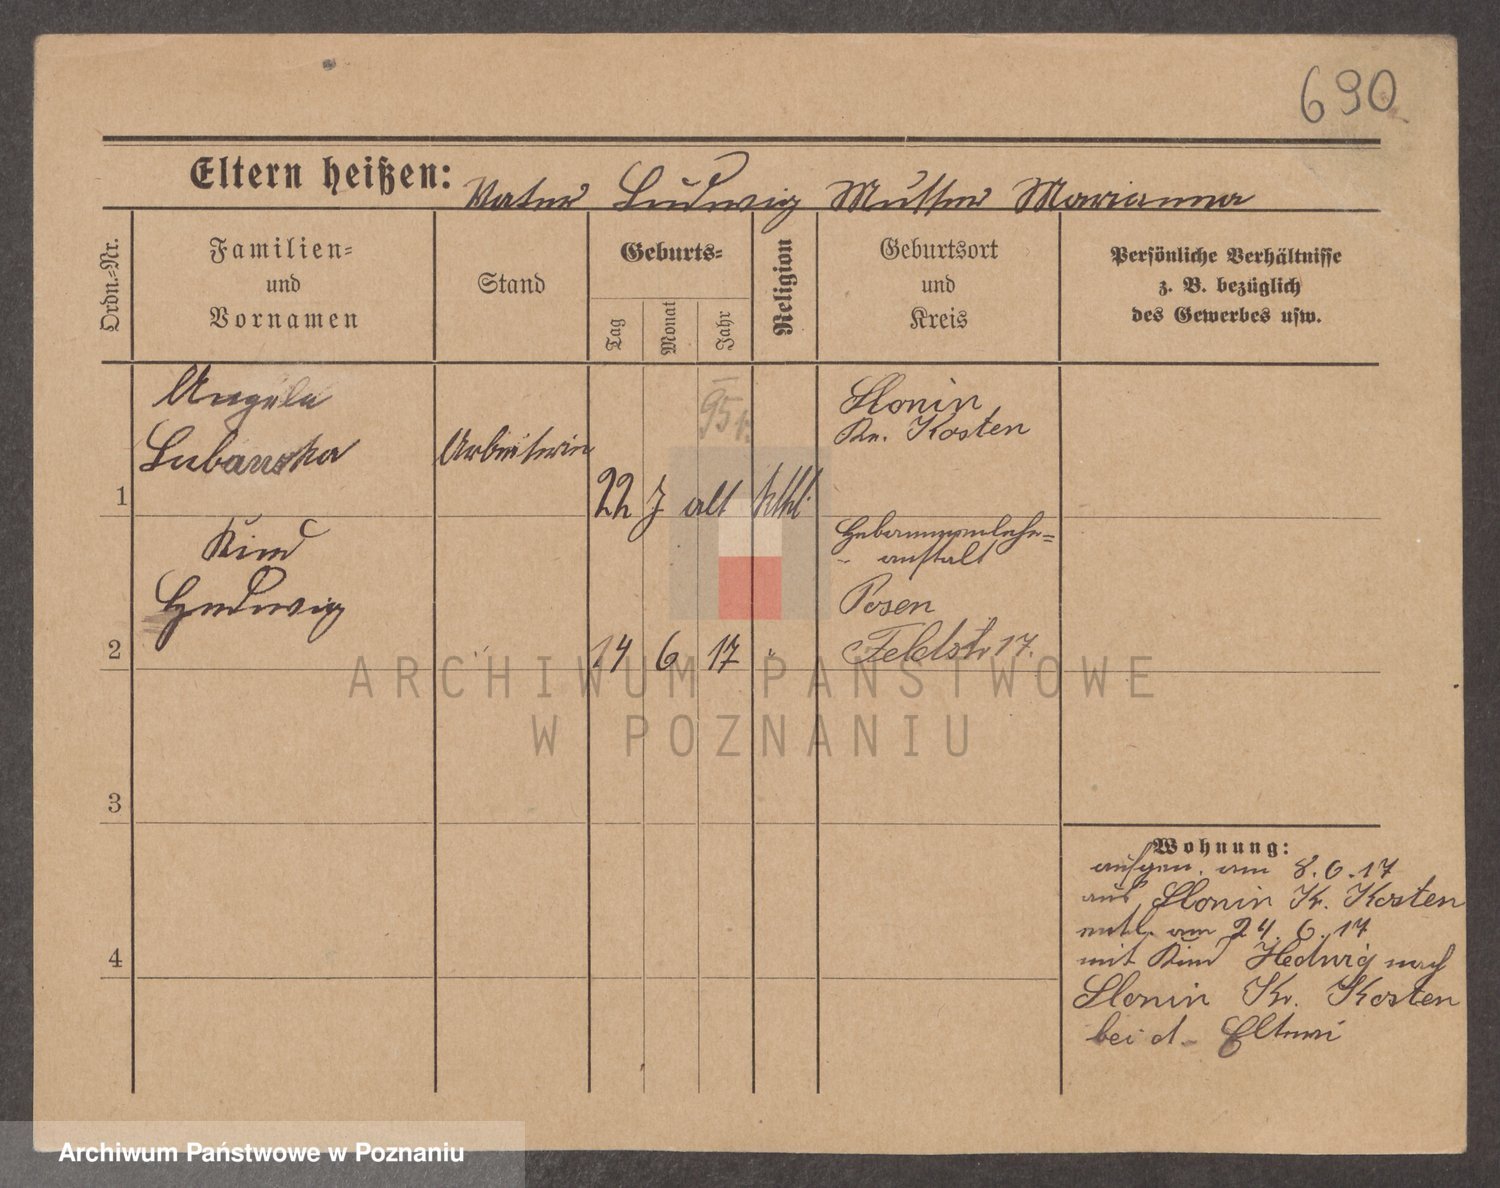 690
Eltern heißen: Vater Ludwig Mutter Marianna
Ordn.-Nr.
Familien-
und
Vornamen
Stand
Geburts-
Tag
Monat
Jahr
Religion
Geburtsort
und
Kreis
Persönliche Verhältnisse
z. B. bezüglich
des Gewerbes usw.
1
Angela
Lubanska
Arbeiterin
22 J alt
95
kthl.
Slonin
Kr. Kosten
2
Kind
Hedwig
"
14 6 17
"
Hebammenlehr=
anstalt
Posen
Feldstr 17.
3
4
Wohnung:
aufgen. am 8.6.17
aus Slonin Kr. Kosten
entl. am 24.6.17
mit Kind Hedwig nach
Slonin Kr. Kosten
bei d. Eltern
ARCHIWUM PAŃSTWOWE
W POZNANIU
Archiwum Państwowe w Poznaniu